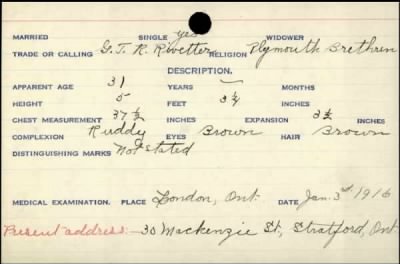 MARRIED SINGLE yes WIDOWER
TRADE OR CALLING G.T.R. Rivetter RELIGION Plymouth Brethren
DESCRIPTION.
APPARENT AGE 31 YEARS — MONTHS
HEIGHT 5 FEET 3¼ INCHES
CHEST MEASUREMENT 37½ INCHES EXPANSION 3½ INCHES
COMPLEXION Ruddy EYES Brown HAIR Brown
DISTINGUISHING MARKS Not Stated
MEDICAL EXAMINATION. PLACE London, Ont. DATE Jan. 3rd 1916
Present address:— 30 Mackenzie St., Stratford, Ont.